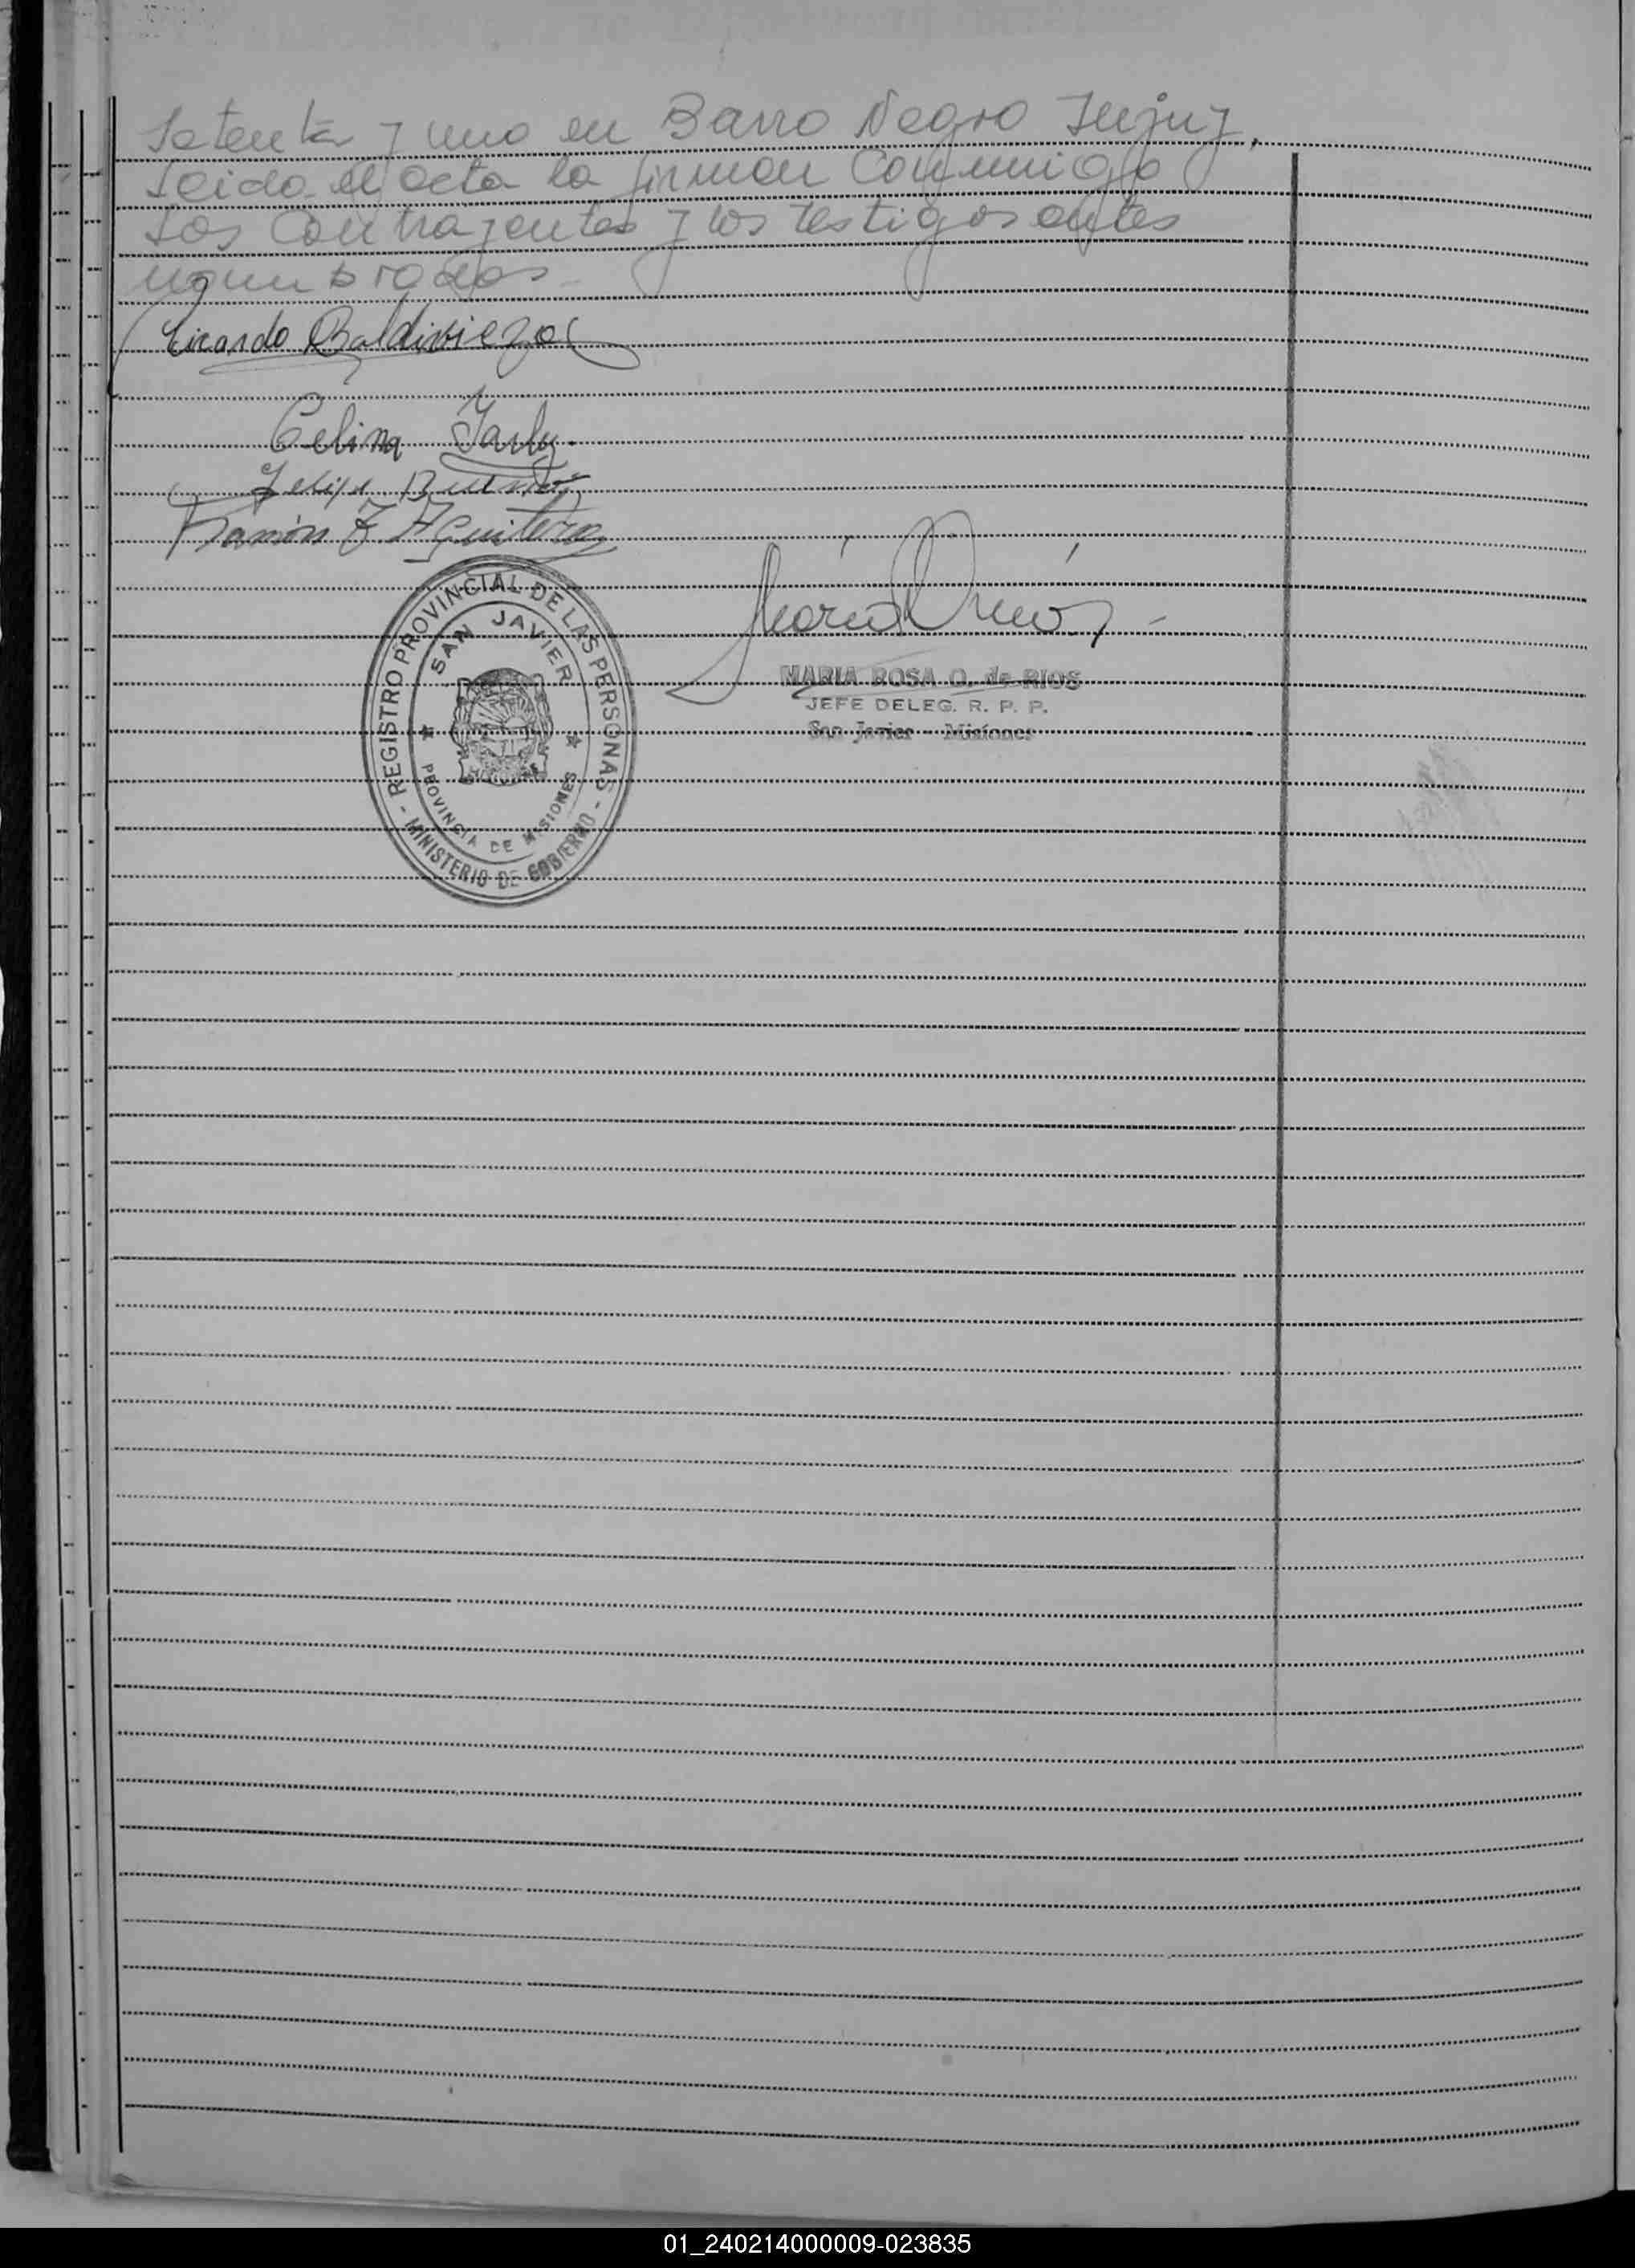 Setenta y uno en Barro Negro Jujuy,
Leida el acta la firman Conmigo
los Contrayentes y los testigos antes
nombrados -
Ricardo Baldiviezo
Celina
Felipe
Ramón Aguilera
REGISTRO PROVINCIAL DE LAS PERSONAS
SAN JAVIER
PROVINCIA DE MISIONES
- MINISTERIO DE GOBIERNO -
MARIA ROSA O. de RIOS
JEFE DELEG. R. P. P.
San Javier - Misiones
01_240214000009-023835